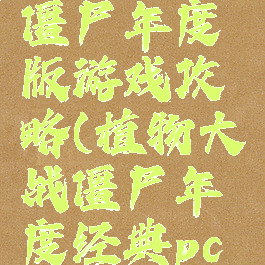 僵尸年度
版游戏攻
略(植物大
战僵尸年
度经典pc